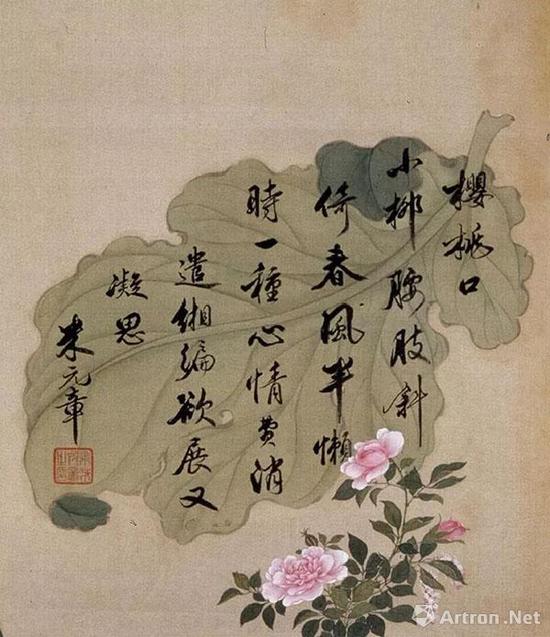 櫻桃口
小柳腰肢斜
倚春風半懶
時一種心情費消
遣緗編欲展又
凝思
米元章
Artron.Net